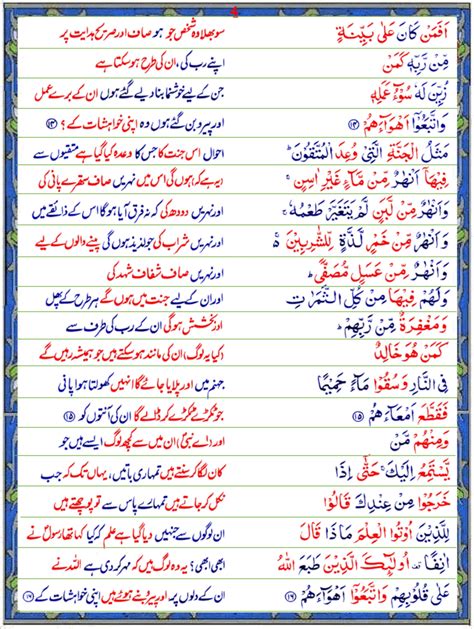 اَفَمَنْ كَانَ عَلٰی بَیِّنَةٍ سو بھلا وہ شخص جو ہو صاف اور صریح ہدایت پر
مِّنْ رَّبِّهٖ كَمَنْ اپنے رب کی، ان کی طرح ہو سکتا ہے
زُیِّنَ لَهٗ سُوْٓءُ عَمَلِهٖ جن کے لیے خوشنما بنا دیے گئے ہوں ان کے برے عمل
وَاتَّبَعُوْۤا اَهْوَآءَهُمْ ﴿۱۴﴾ اور پیرو بن گئے ہوں وہ اپنی خواہشات کے؟ ﴿۱۴﴾
مَثَلُ الْجَنَّةِ الَّتِیْ وُعِدَ الْمُتَّقُوْنَ ؕ احوال اس جنت کا جس کا وعدہ کیا گیا ہے متقیوں سے
فِیْهَاۤ اَنْهٰرٌ مِّنْ مَّآءٍ غَیْرِ اٰسِنٍ ۚ ایہ ہے کہ ہوں گی اس میں نہریں صاف ستھرے پانی کی
وَاَنْهٰرٌ مِّنْ لَّبَنٍ لَّمْ یَتَغَیَّرْ طَعْمُهٗ ۚ اور نہریں دودھ کی کہ نہ فرق آیا ہوگا اس کے ذائقے میں
وَاَنْهٰرٌ مِّنْ خَمْرٍ لَّذَّةٍ لِّلشّٰرِبِیْنَ ۚ اور نہریں شراب کی جو لذیذ ہوگی پینے والوں کے لیے
وَاَنْهٰرٌ مِّنْ عَسَلٍ مُّصَفًّی ؕ اور نہریں صاف شفاف شہد کی
وَلَهُمْ فِیْهَا مِنْ كُلِّ الثَّمَرٰتِ اور ان کے لیے جنت میں ہوں گے ہر طرح کے پھل
وَمَغْفِرَةٌ مِّنْ رَّبِّهِمْ ؕ اور بخشش ہوگی ان کے رب کی طرف سے
كَمَنْ هُوَ خَالِدٌ کیا یہ لوگ، ان کی مانند ہو سکتے ہیں جو ہمیشہ رہیں گے
فِی النَّارِ وَسُقُوْا مَآءً حَمِیْمًا جہنم میں اور پلایا جائے گا انہیں کھولتا ہوا پانی
فَقَطَّعَ اَمْعَآءَهُمْ ﴿۱۵﴾ جو ٹکڑے ٹکڑے کر ڈالے گا ان کی آنتوں کو ﴿۱۵﴾
وَمِنْهُمْ مَّنْ اور (اے نبیؐ) ان میں سے کچھ لوگ ایسے ہیں جو
یَّسْتَمِعُ اِلَیْكَ ۚ حَتّٰۤی اِذَا کان لگا کر سنتے ہیں تمہاری باتیں، یہاں تک کہ جب
خَرَجُوْا مِنْ عِنْدِكَ قَالُوْا نکل کر جاتے ہیں تمہارے پاس سے تو پوچھتے ہیں
لِلَّذِیْنَ اُوْتُوا الْعِلْمَ مَاذَا قَالَ ان لوگوں سے جنہیں دیا گیا ہے علم کیا کہا تھا رسولؐ نے
اٰنِفًا ۫ اُولٰٓئِكَ الَّذِیْنَ طَبَعَ اللّٰهُ ابھی ابھی؟ یہ وہ لوگ ہیں کہ مہر کر دی ہے اللہ نے
عَلٰی قُلُوْبِهِمْ وَاتَّبَعُوْۤا اَهْوَآءَهُمْ ﴿۱۶﴾ ان کے دلوں پر اور پیرو بنے ہوئے ہیں اپنی خواہشات کے ﴿۱۶﴾